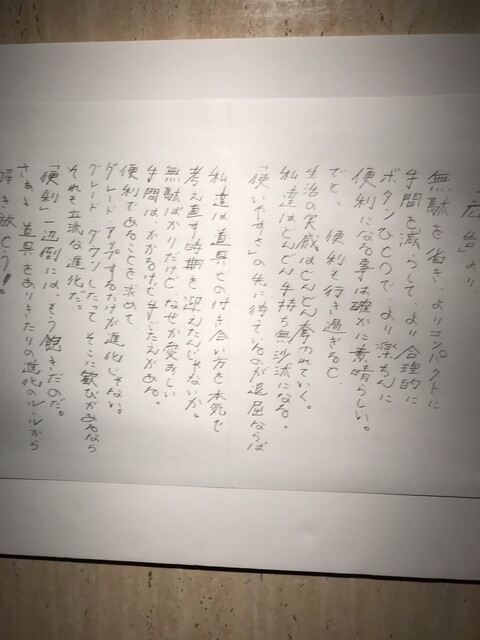 広告より
無駄を省き、よりコンパクトに
手間を減らして、より合理的に
ボタンひとつで、より楽ちんに
便利になる事は確かに素晴らしい。
でも、便利も行き過ぎると、
生活の実感はどんどん奪われていく。
私達はどんどん手持ち無沙汰になる。
「使いやすさ」の先に待ているのが退屈ならば
私達は道具との付き合い方を本気で
考え直す時期を迎えたんじゃないか。
無駄ばかりだけど、なぜか愛おしい
手間はかかるけど手ごたえがある。
便利であることを求めて
グレードアップするだけが進化じゃない。
グレードダウンしたって そこに歓びがあるなら
それも立派な進化だ。
「便利」一辺倒には、もう飽きだのだ。
さあ、道具をありきたりの進化のルールから
解き放とう!。